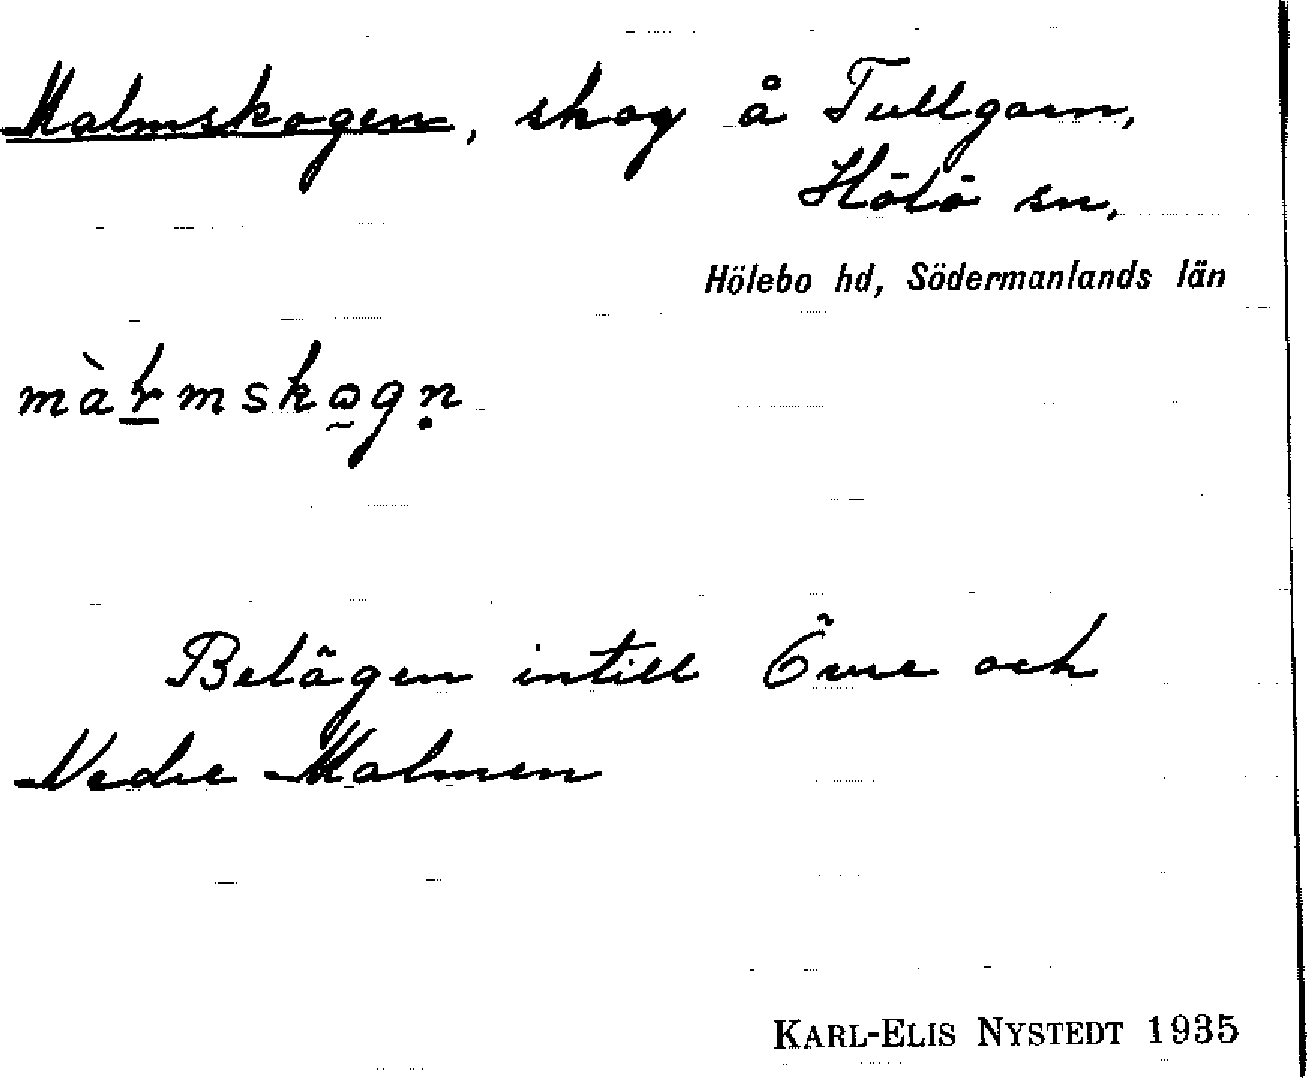 Malmskogen, skog å Tullgarn,
Hölö sn,
Hölebo hd, Södermanlands län
Belägen intill Övre och
Nedre Malmen
KARL-ELIS NYSTEDT 1935